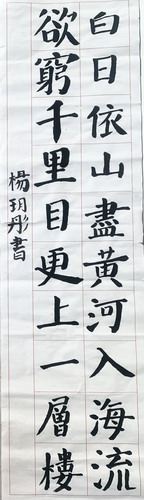 白日依山盡黃河入海流
欲窮千里目更上一層樓
楊玥彤書